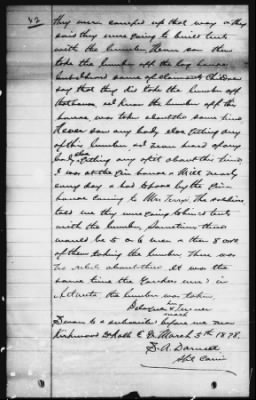 they were camped up that way & they
said they were going to build tents
with the lumber. I seen so them
take the lumber off the log house
but I heard some of claimants Children
say that they did take the lumber off
that house. The lumber off this
house was took about the same time.
Never saw any body else getting any
of this lumber nor heard of any
body else getting any of it about this time.
I was at the Gin house & Mill nearly
every day & had to pass by the Gin
house going to Mrs. The soldiers
told me they were going to build tents
with the lumber. Sometimes there
would be 5 or 6 men & then 8 or 10
of them taking the lumber. There was
No rebels about there. It was the
same time the Yankees were in
Atlanta, the lumber was taken.
his
Turner
mark
Sworn to & subscribed before me near
Kirkwood DeKalb Co Ga March 5th 1878.
S. A. Darnell
Spl Com